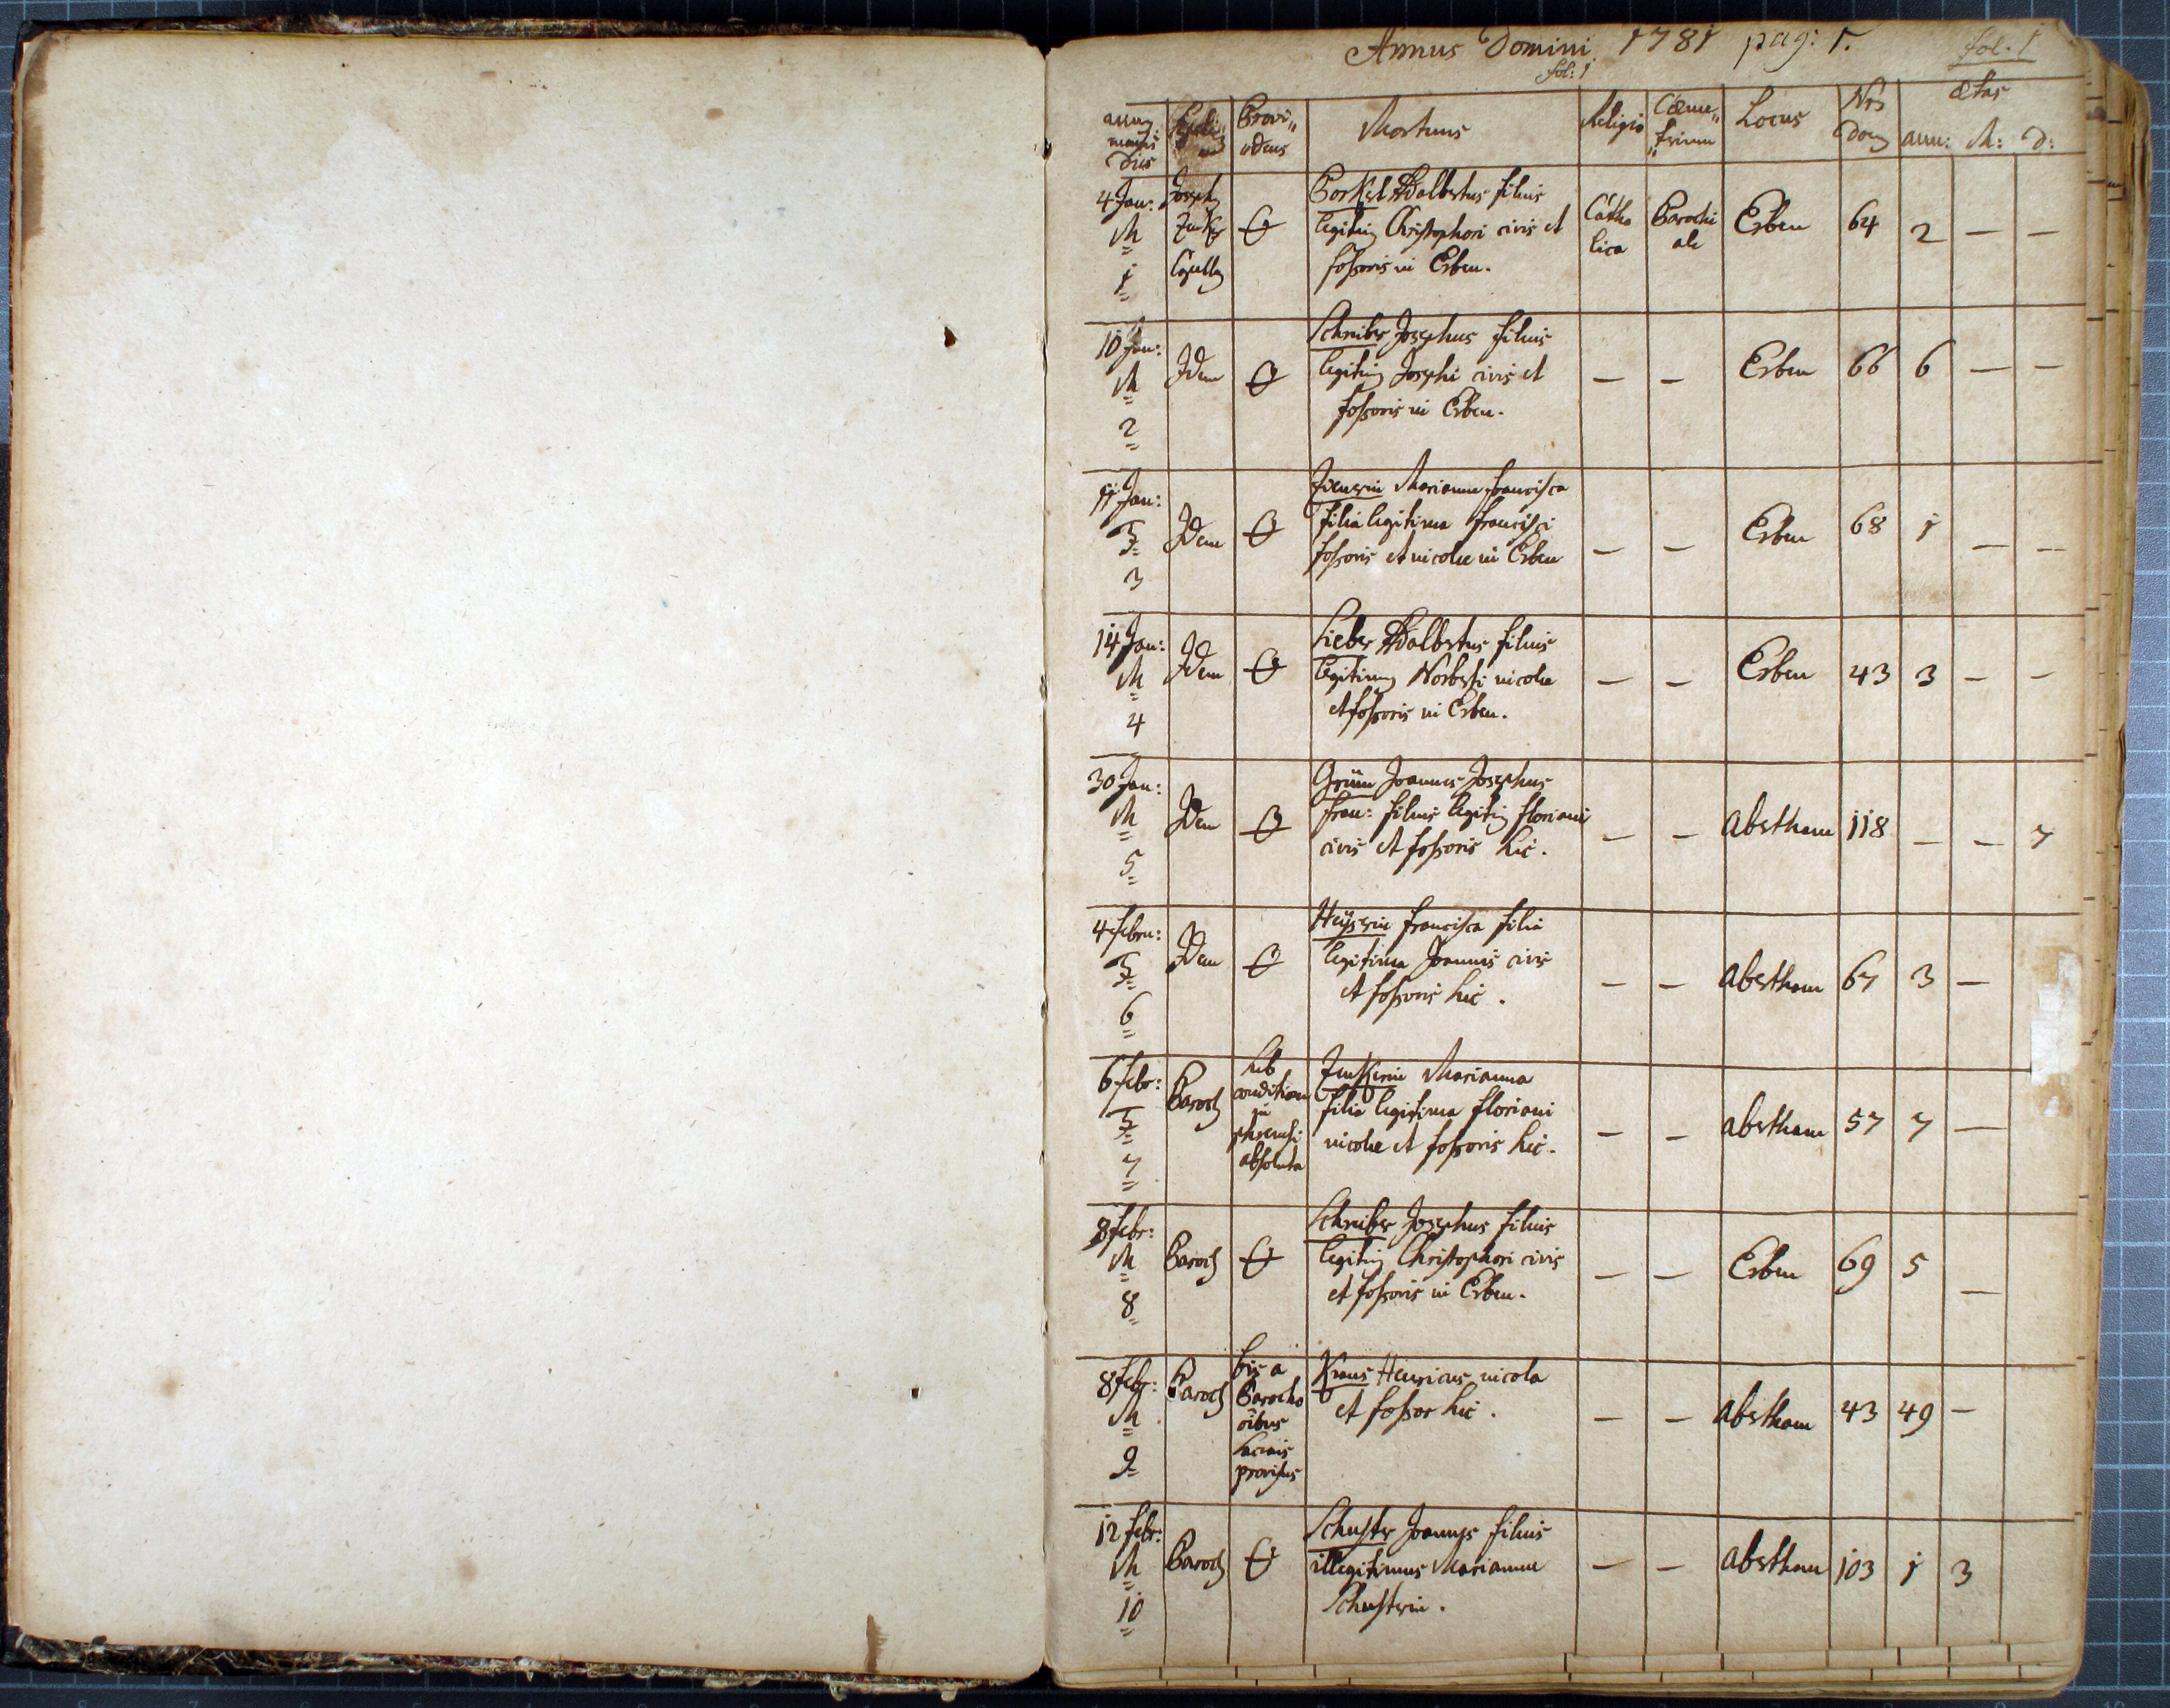 Annus Domini 1781 pag: 1.
fol: 1
fol. 1
annus mensis Dies | Sepeliens | Provi„ „dens | Mortuus | Religio | Cæme„ „terium | Locus | Nrs Domus | ætas ann: M: D:
4 Jan: M 1 | Joseph Capellanus | Catho lica | Parochi ale | Erben | 64 | 2 | — | —
Adalbertus filius
legitimus Christophori civis et
fossoris in Erben.
10 Jan: M 2 | Idem | — | — | Erben | 66 | 6 | — | —
Schreiber Josephus filius
legitimus Josephi civis et
fossoris in Erben.
11 Jan: F 3 | Idem | — | — | Erben | 68 | 1 | — | —
Marianna Francisca
filia legitima Francisci
fossoris et incolae in Erben
14 Jan: M 4 | Idem | — | — | Erben | 43 | 3 | — | —
Sieber Adalbertus filius
legitimus Norberti incolae
et fossoris in Erben.
30 Jan: M 5 | Idem | — | — | abertham | 118 | — | — | 7
Grüm Joannes Josephus
Fran: filius legitimus Floriani
civis et fossoris hic.
4 Febru: F 6 | Idem | — | — | abertham | 67 | 3 | —
Heÿserin Francisca filia
legitima Joannis civis
et fossoris hic.
6 Febr: F 7 | Paroch | sub conditione in phrenesi absoluta | — | — | abertham | 57 | 7 | —
Zenkerin Marianna
filia legitima Floriani
incolae et fossoris hic.
8 Febr: M 8 | Paroch | — | — | Erben | 69 | 5 | —
Schreiber Josephus filius
legitimus Christophori civis
et fossoris in Erben.
8 Febr: M 9 | Paroch | bis a Parocho oībus sacris provisus | — | — | abertham | 43 | 49 | —
Kraus Henricus incola
et fossor hic.
12 Febr: M 10 | Paroch | — | — | abertham | 103 | 1 | 3
Schuster Joannes filius
illegitimus Mariannae
Schusterin.